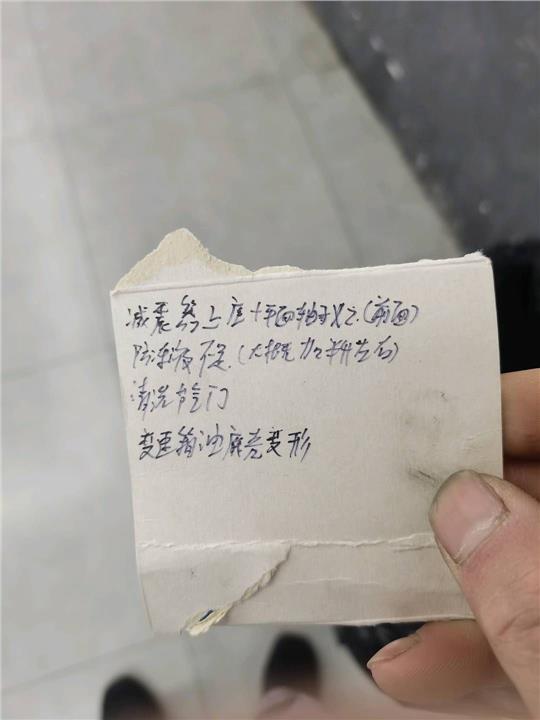 减震器上座+平面轴承(前面)
防冻液不足(大概加 左右)
清洗节气门
变速箱油底壳变形